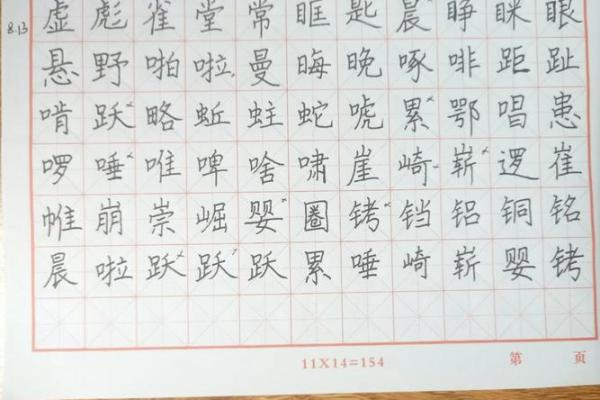 8.13
虚彪雀堂常眶匙晨睁眯眼
悬野啪啦曼晦晚啄啡距趾
啃跃略蚯蛀蛇唬累鄂唱患
啰唾唯啤啥啸崖崎崭逻崔
帷崩崇崛婴圈铐铛铝铜铭
晨啦跃跃跃累唾崎崭婴铐
11X14=154 第 页